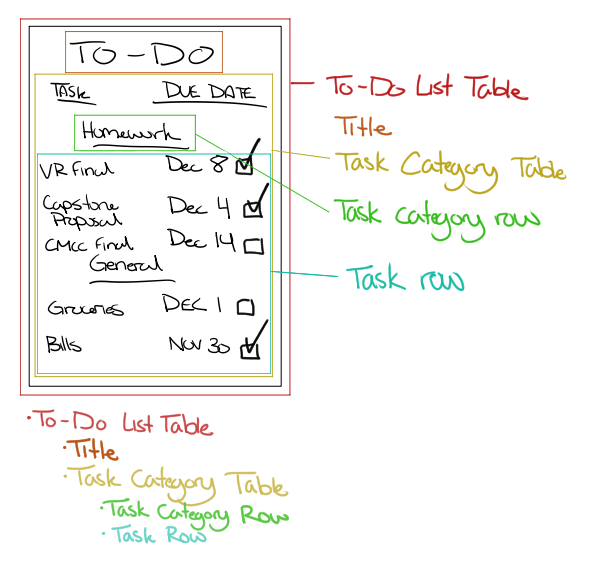 TO-DO
TASK DUE DATE
Homework
VR Final Dec 8
Capstone Proposal Dec 4
CMCC Final Dec 14
General
Groceries DEC 1
Bills Nov 30
To-Do List Table
Title
Task Category Table
Task category row
Task row
·To-Do List Table
·Title
·Task Category Table
·Task Category Row
·Task Row